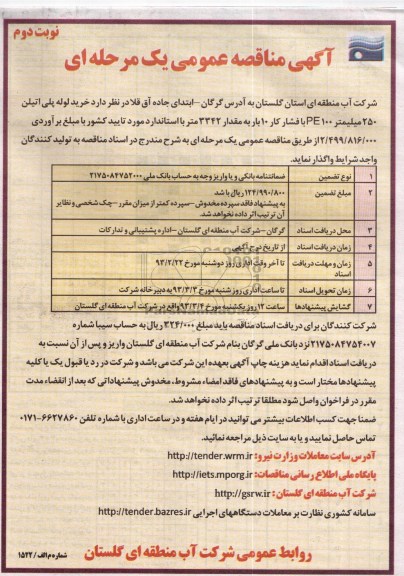 نوبت دوم
آگهی مناقصه عمومی یک مرحله ای
شرکت آب منطقه ای استان گلستان به آدرس گرگان – ابتدای جاده آق قلا در نظر دارد خرید لوله پلی اتیلن
۲۵۰ میلیمتر PE۱۰۰ با فشار کار ۱۰ بار به مقدار ۳۳۴۲ متر با استاندارد مورد تایید کشور با مبلغ برآوردی
۲/۴۹۹/۸۱۶/۰۰۰ از طریق مناقصه عمومی یک مرحله ای به شرح مندرج در اسناد مناقصه به تولید کنندگان
واجد شرایط واگذار نماید.
۱ نوع تضمین ضمانتنامه بانکی و یا واریز وجه به حساب بانک ملی ۲۱۷۵۰۸۴۷۵۲۰۰۰
۲ مبلغ تضمین ۱۲۴/۹۹۰/۸۰۰ ریال باشد
به پیشنهاد فاقد سپرده مخدوش – سپرده کمتر از میزان مقرر – چک شخصی و نظایر
آن ترتیب اثر داده نخواهد شد.
۳ محل دریافت اسناد گرگان – شرکت آب منطقه ای گلستان – اداره پشتیبانی و تدارکات
۴ زمان دریافت اسناد از تاریخ درج آگهی
۵ زمان و مهلت دریافت اسناد تا آخر وقت اداری روز دوشنبه مورخ ۹۳/۱/۲۲
۶ زمان تحویل اسناد تا ساعت اداری روز شنبه مورخ ۹۳/۳/۳ به دبیرخانه شرکت
۷ گشایش پیشنهادها ساعت ۱۲ روز یکشنبه مورخ ۹۳/۳/۴ واقع در شرکت آب منطقه ای گلستان
شرکت کنندگان برای دریافت اسناد مناقصه باید مبلغ ۳۲۴/۰۰۰ ریال به حساب سیبا شماره
۲۱۷۵۰۸۴۷۵۴۰۰۷ نزد بانک ملی گرگان بنام شرکت آب منطقه ای گلستان واریز و پس از آن نسبت به
دریافت اسناد اقدام نماید هزینه چاپ آگهی بعهده این شرکت می باشد و شرکت در رد یا قبول یک یا کلیه
پیشنهادها مختار است و به پیشنهادهای فاقد امضاء مشروط، مخدوش پیشنهاداتی که بعد از انقضاء مدت
مقرر در فراخوان واصل شود مطلقا ترتیب اثر داده نخواهد شد.
ضمنا جهت کسب اطلاعات بیشتر می توانید در ایام هفته و در ساعت اداری با شماره تلفن ۶۶۲۷۸۶۰-۰۱۷۱
تماس حاصل نمایید و یا به سایت ذیل مراجعه نمائید.
آدرس سایت معاملات وزارت نیرو: http://tender.wrm.ir
پایگاه ملی اطلاع رسانی مناقصات: http://iets.mporg.ir
شرکت آب منطقه ای گلستان : http://gsrw.ir
سامانه کشوری نظارت بر معاملات دستگاههای اجرایی http://tender.bazres.ir
روابط عمومی شرکت آب منطقه ای گلستان
شماره م الف / ۱۵۴۲